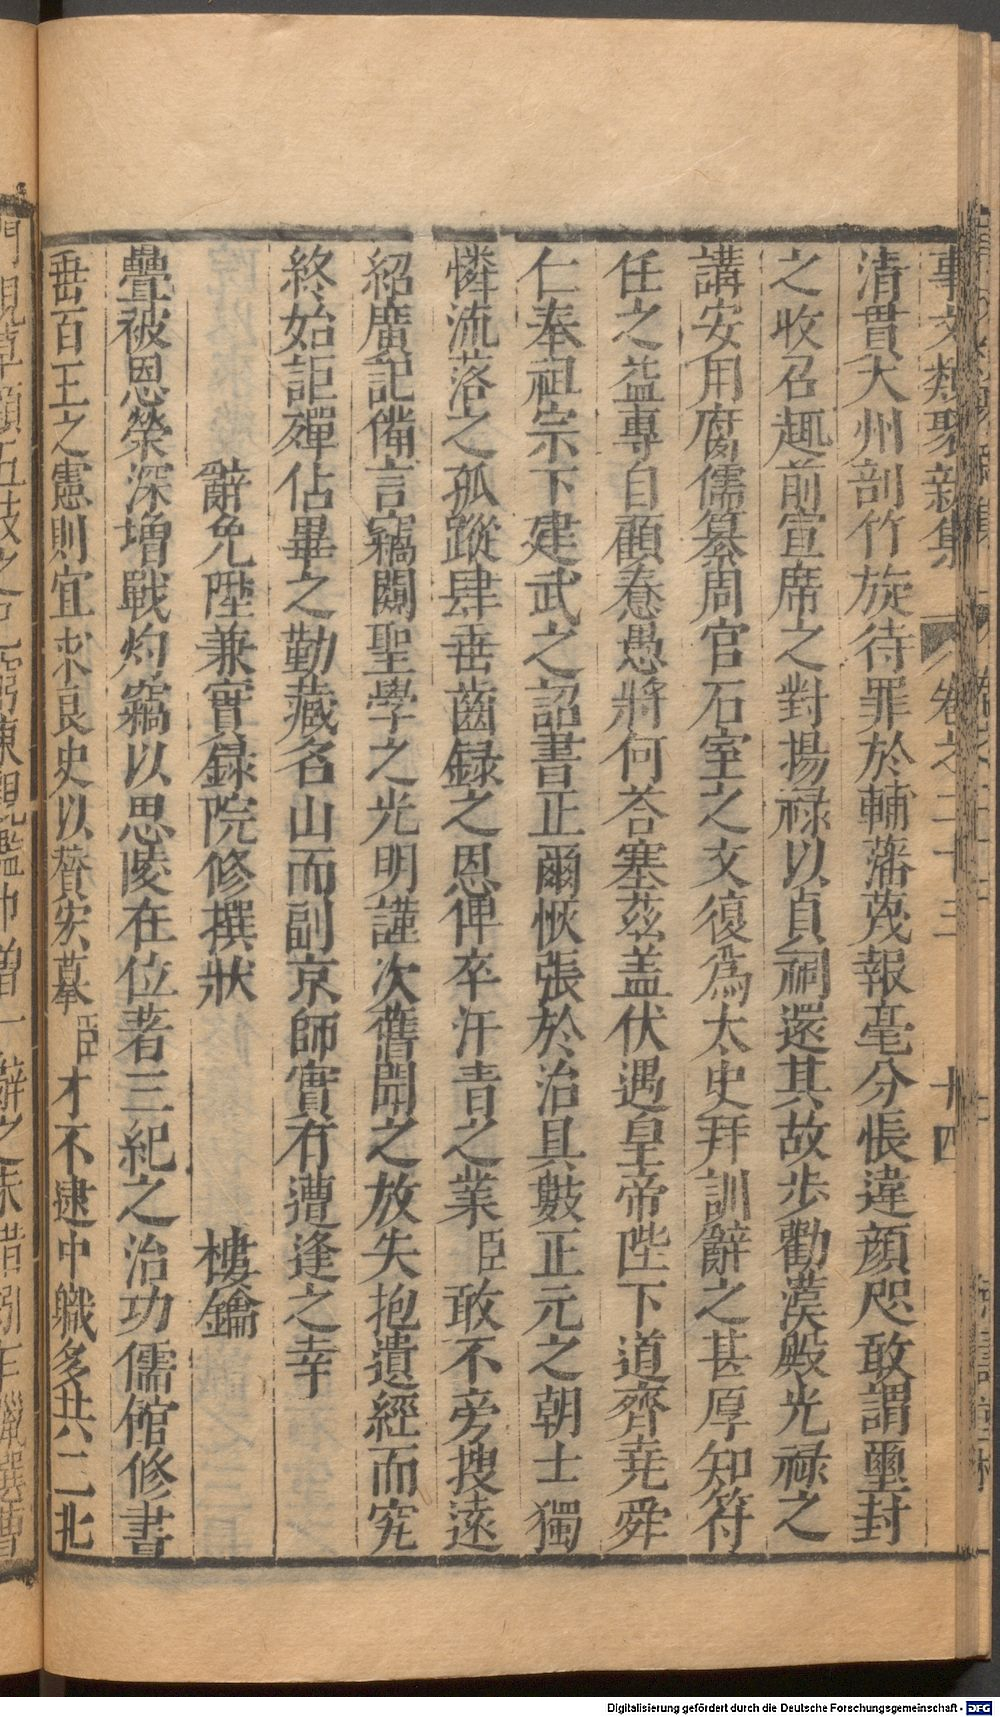 事文類聚新集 卷之二十三 十四
清貫大州剖竹旋待罪於輔藩蔑報毫分悵違顔咫敢謂璽封
之收召趣前宣席之對揚祿以真祠還其故步勸漢殿光祿之
講安用腐儒纂周官石室之文復為太史拜訓辭之甚厚知符
任之益專自顧惷愚將何荅塞茲盖伏遇皇帝陛下道齊堯舜
仁奉祖宗下建武之詔書正爾恢張於治具數正元之朝士獨
憐流落之孤蹤肆垂齒録之恩俾卒汗青之業臣敢不旁搜遠
紹廣記備言竊闚聖學之光明謹次舊聞之放失抱遺經而究
終始詎殫佔畢之勤藏名山而副京師實有遭逢之幸
辭免陞兼實録院修撰狀 樓鑰
疊被恩榮深増戰灼竊以思陵在位者三紀之治功儒館修書
垂百王之憲則宜求良史以贊宏摹臣才不逮中職多共二北
Digitalisierung gefördert durch die Deutsche Forschungsgemeinschaft - DFG